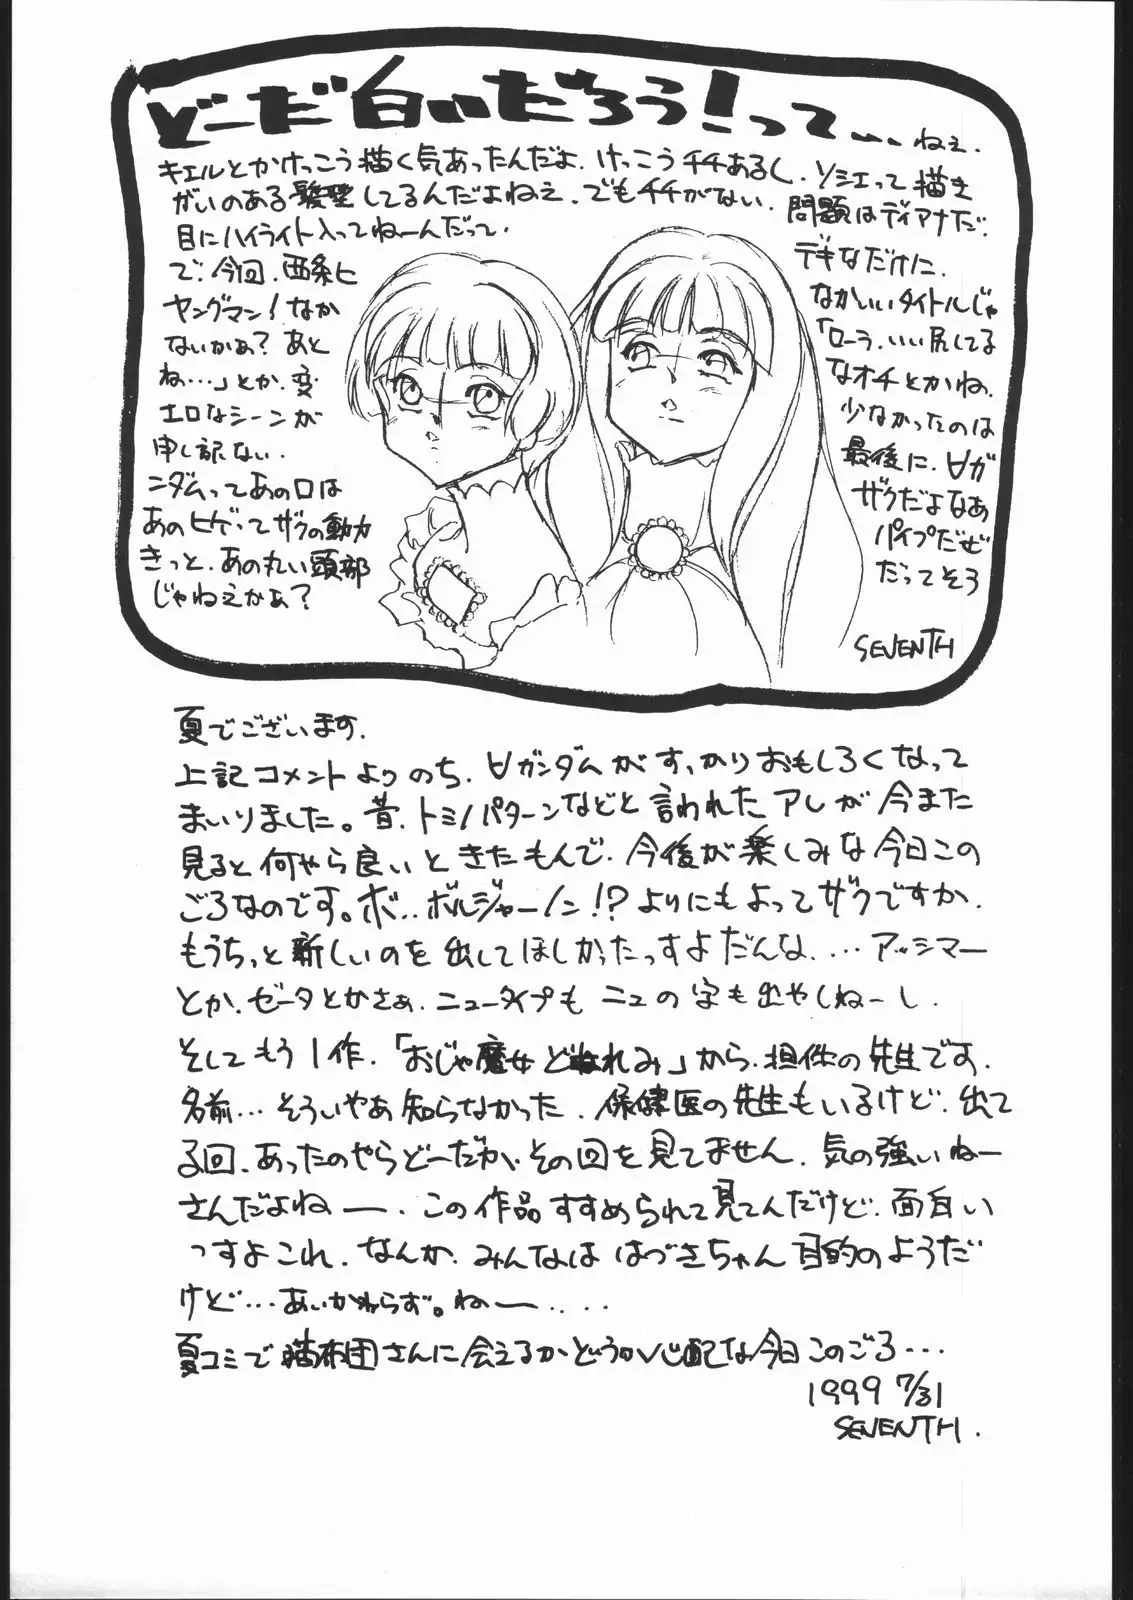 どーだ白いだろう!って...ねぇ.
キエルとかけっこう描く気あったんだよ.けっこうチチあるし.ソシエって描き
がいのある髪型してるんだよねえ.でもチチがない.問題はディアナだ.
目にハイライト入ってねーんだって.
デキなだけに.
で.今回.西条ヒ
なかいいタイトルじゃ
ヤングマン!なか
「ローラ.いい尻してる
ないかぁ?あと
なオチとかね.
ね...」とか.変
少なかったのは
エロなシーンが
最後に.∀ガ
申し訳ない.
ザクだよなあ
ニダムってあの口は
パイプだぜ
あのヒゲってザクの動力
だってそろ
きっと.あの丸い頭部
じゃねえかぁ?
SEVENTH
夏でございます.
上記コメントよりのち.∀ガンダムがすっかりおもしろくなって
まいりました。昔.トミノパターンなどと言われたアレが今また
見ると何やら良いときたもんで.今後が楽しみな今日この
ごろなのです。ボ..ボルジャーノン!?よりにもよってザクですか.
もうちっと新しいのを出してほしかったっすよだんな....アッシマー
とか.ゼータとかさぁ.ニュータイプもニュの字も出やしねーし.
そしてもう1作.「おじゃ魔女どれみ」から.担任の先生です.
名前...そういやあ知らなかった.保健医の先生もいるけど.出て
る回.あったのやらどーだか.その回を見てません.気の強いねー
さんだよねー.この作品すすめられて見てんだけど.面白い
っすよこれ.なんか.みんなははづきちゃん目的のようだ
けど...あいかわらず。ねー....
夏コミで猫布団さんに会えるかどうか心配な今日このごろ...
1999 7/31
SEVENTH.